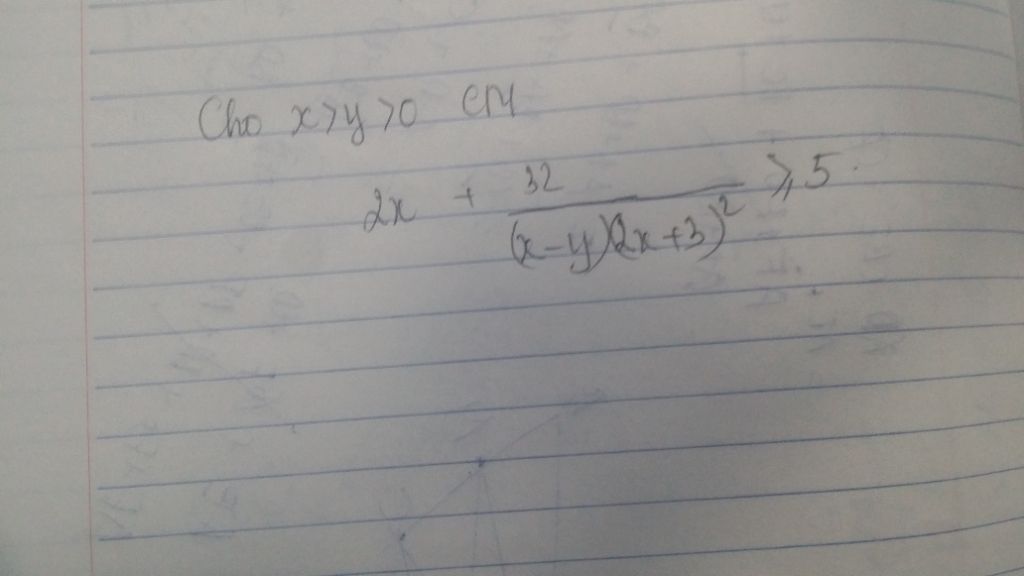 Cho x>y>0 CM
2x + 32/((x-y)(2x+3)²) ≥ 5.